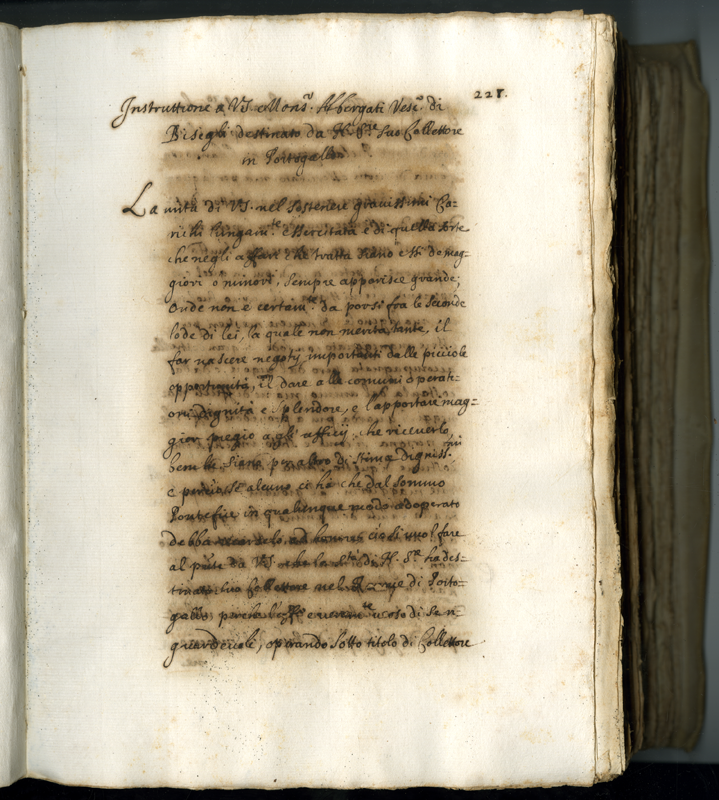 221.
Instruttione a VS Mons.r Albergati Vesc.o di
Bisegli destinato da N. S.re suo Collettore
in Portogallo
La uirtù di VS. nel sostenere grauissimi Ca-
richi lungam.te essercitata è di quella sorte
che negli affari che tratta siano essi di mag-
giori, o minori, sempre apparisce grande;
Onde non è certam.te da porsi fra le seconde
lode di lei, la quale non merita tante, il
far nascere negotij importanti dalle picciole
opportunità, il dare alle comuni operati-
oni dignità e splendore, e l'apportare mag-
gior pregio a gli uffitij che riceuerlo,
benche siano per altro di stima digniss.mi
e perciò se alcuno ci ha che dal sommo
Pontefice in qualunque modo adoperato
debba ciò si uuol fare
al pari da VS. che la S.tà di N. S.re ha des-
tinato suo Collettore nel Regno di Porto-
gallo perche di
operando sotto titolo di Collettore